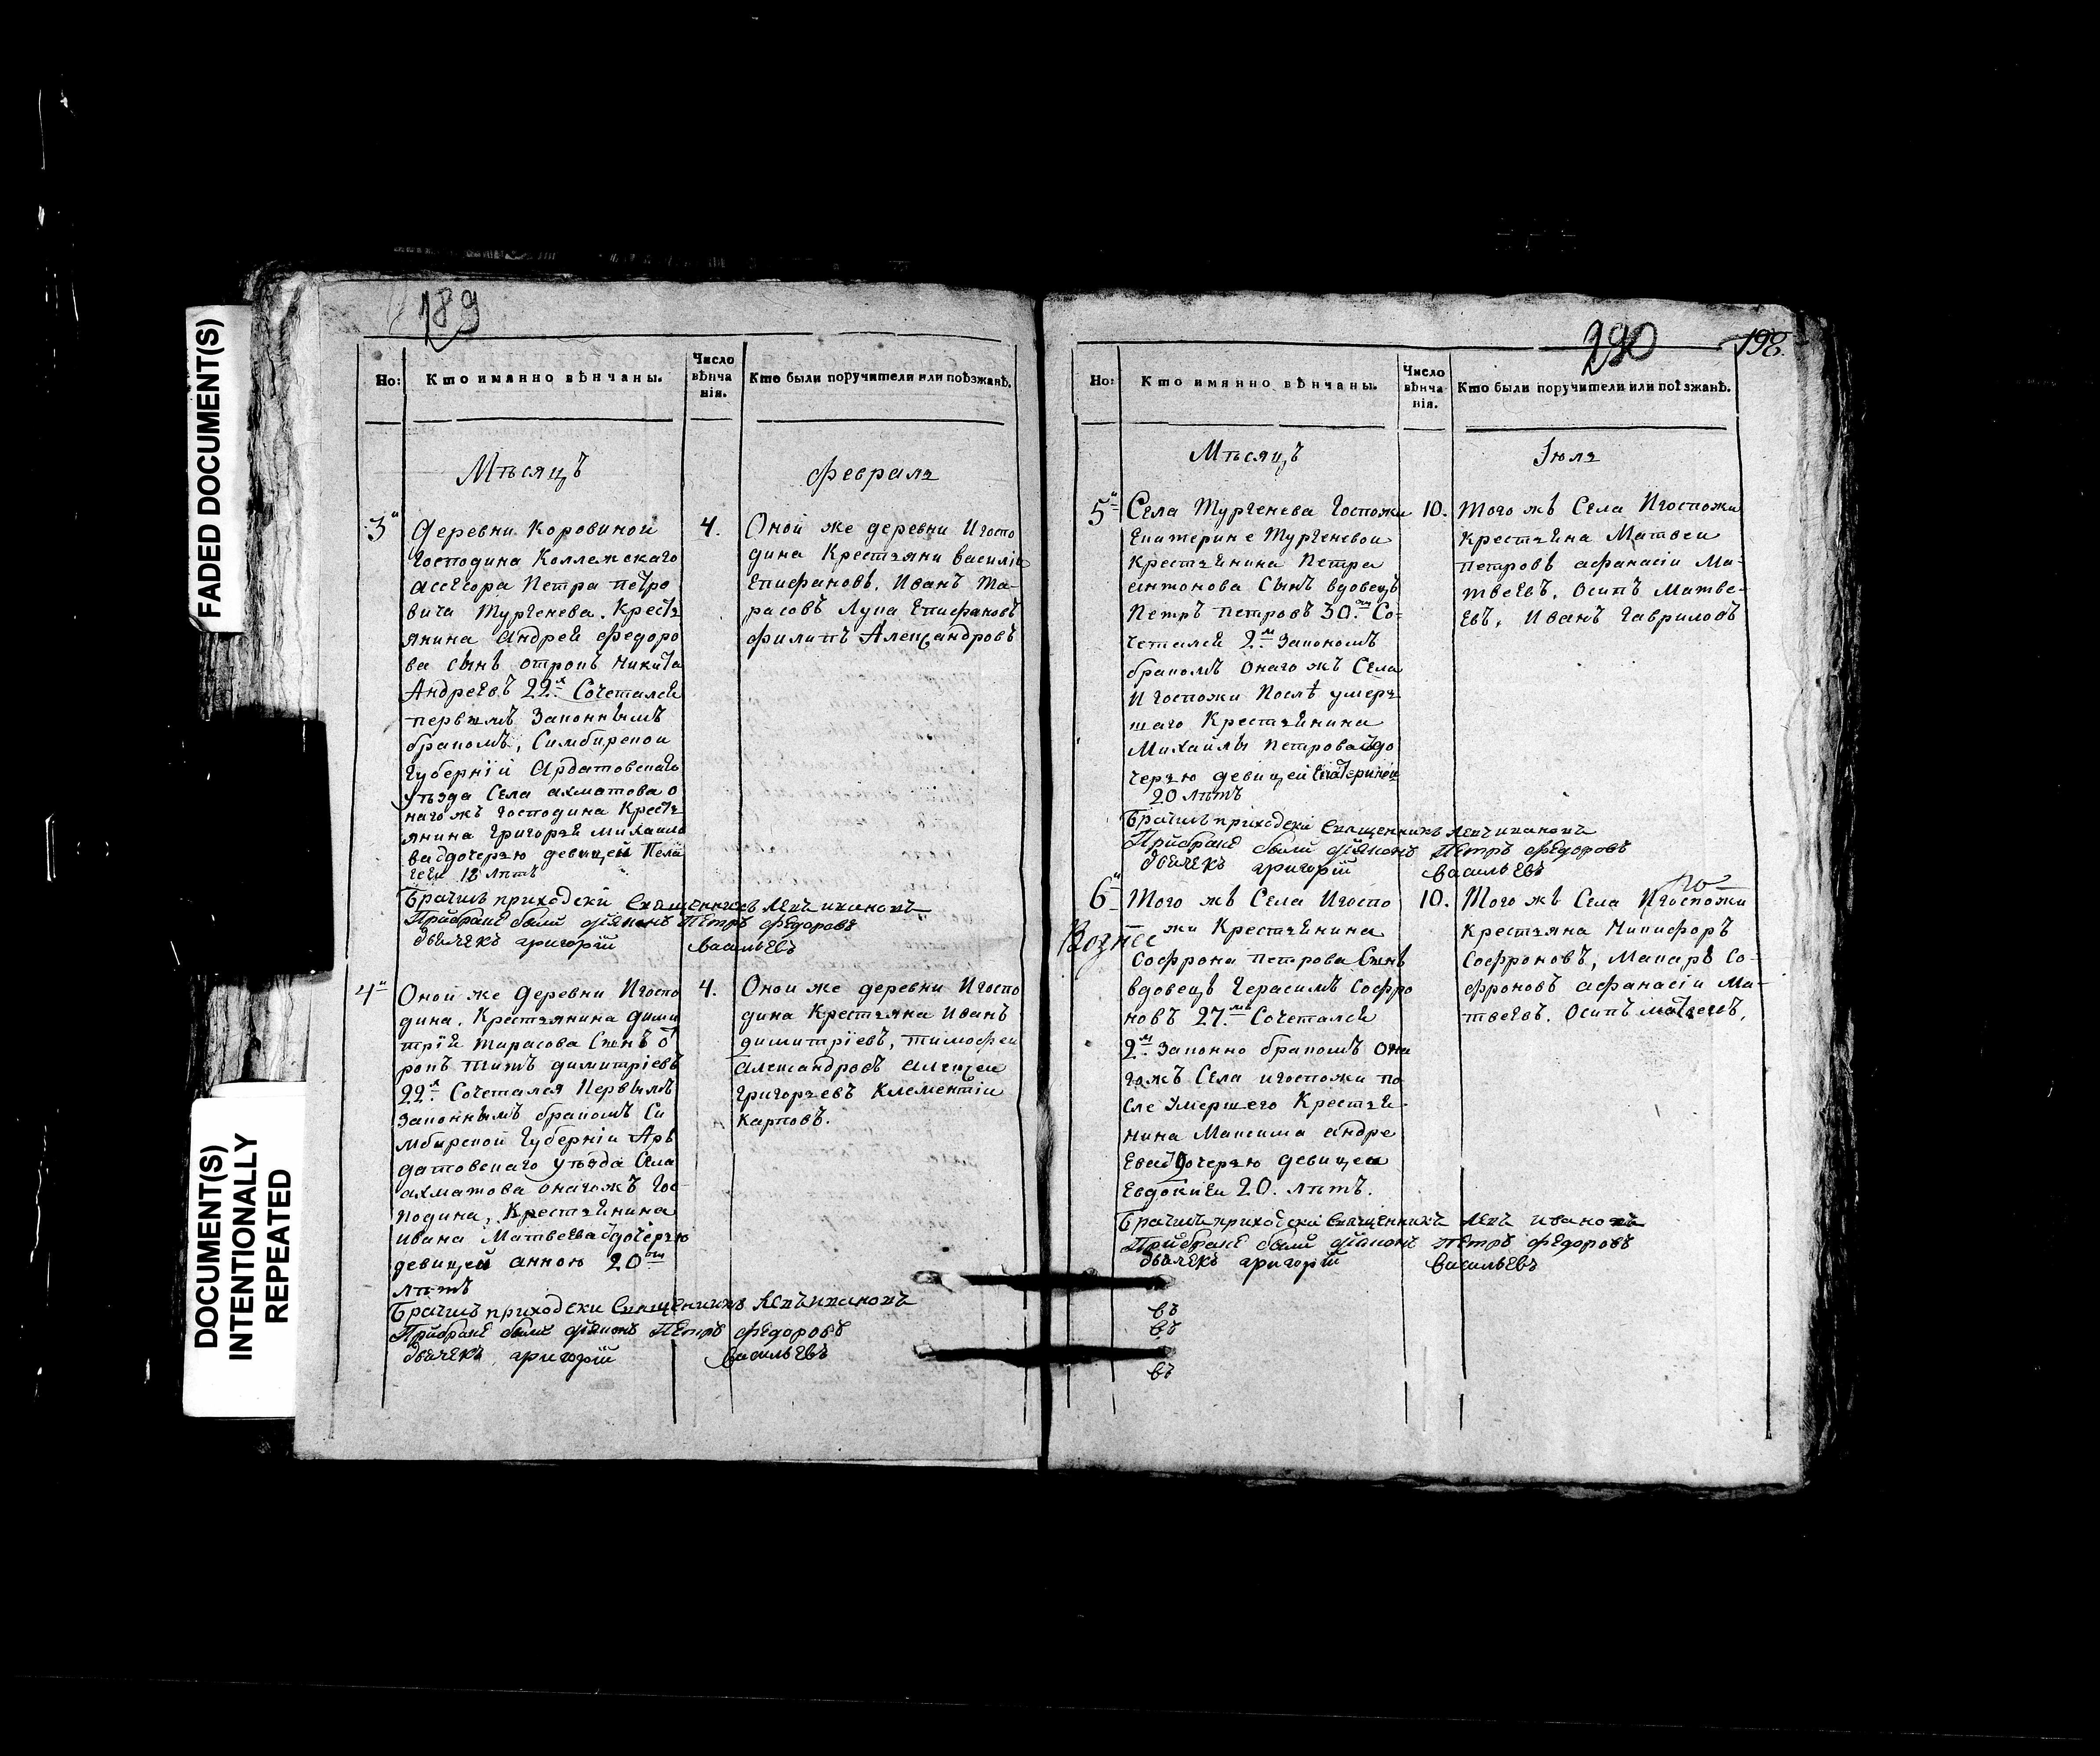 FADED DOCUMENT(S)
DOCUMENT(S)
INTENTIONALLY
REPEATED
189
Но:
Кто имянно вѣнчаны.
Число
вѣнча
нія.
Кто были поручители или поѣзжанѣ.
Мѣсяцъ
февраля
3
Деревни Коровиной
Господина Коллежскаго
асесора Петра петро
вича Тургенева. Кресть
янина Андрей федоро
ва сынъ отрокъ Никита
Андреевъ 22х Сочетался
первымъ Законнымъ
бракомъ, Симбирской
Губерніи Ардатовскаго
уѣзда Села ахматова о
наго жъ Господина Кресть
янина Григорья михаило
ва дочерью девицей Пела
геей 18 лѣтъ
4.
Оной же деревни И госпо
дина Крестьяни василіи
Епифановъ. Иванъ Та-
расовъ Лука Епифановъ
филипъ Александровъ
Брачилъ приходски Священникъ Левъ ивановъ
При бракѣ были діяконъ Петръ федоровъ
дьячекъ григорій Васильевъ
4
Оной же Деревни И госпо
дина. Крестьянина дими
трій тарасова Сынъ от
рокъ титъ димитріевъ
22х Сочетался Первымъ
законнымъ бракомъ Си
мбирской Губерніи Арь
датовскаго уѣзда Села
ахматова онагожъ Гос-
подина, Крестьянина
ивана Матвева дочерью
девицей анною 20
лѣтъ
4.
Оной же деревни И госпо
дина Крестьяна Иванъ
димитріевъ, тимофеи
александровъ алексеи
григорьевъ Клементіи
карповъ.
Брачилъ приходски Священникъ Левъ ивановъ
При бракѣ были діяконъ Петръ федоровъ
дьячекъ григорій Васильевъ
290
198.
Но:
Кто имянно вѣнчаны.
Число
вѣнча
нія.
Кто были поручители или поѣзжанѣ.
Мѣсяцъ
Іюля
5
Села Тургенева Госпожи
Екатерине Тургеневои
крестьянина Петра
антонова Сынъ вдовецъ
Петръ петровъ 30. Со-
четался 2м Закономъ
бракомъ онаго жъ Села
И госпожи Послѣ умерь
шаго Крестьянина
Михайлы петрова до
черью девицей Екатериной
20 лѣтъ
10.
Того жъ Села И госпожи
крестьяна Матвеи
петровъ афанасіи Ма-
твеевъ. Осипъ Матве-
евъ, Иванъ Гавриловъ
Брачилъ приходски Священникъ Левъ ивановъ
При бракѣ были діяконъ Петръ федоровъ
дьячекъ григорій Васильевъ
6
Того жъ Села И госпо
жи Крестьянина
Софрона петрова Сынъ
вдовецъ Герасимъ софро
новъ 27. Сочетался
2м Законно бракомъ она
гожъ Села и госпожи по
сле умершего Крестья
нина Максима андре
ева дочерью девицеи
евдокиеи 20. лѣтъ.
10.
Того жъ Села И госпожи
крестьяна Никифоръ
Софроновъ, Макаръ Со-
фроновъ афанасіи Ма-
твеевъ. Осипъ матвеевъ,
Брачилъ приходски Священникъ Левъ ивановъ
При бракѣ были діяконъ Петръ федоровъ
дьячекъ григорій Васильевъ
въ
въ
въ